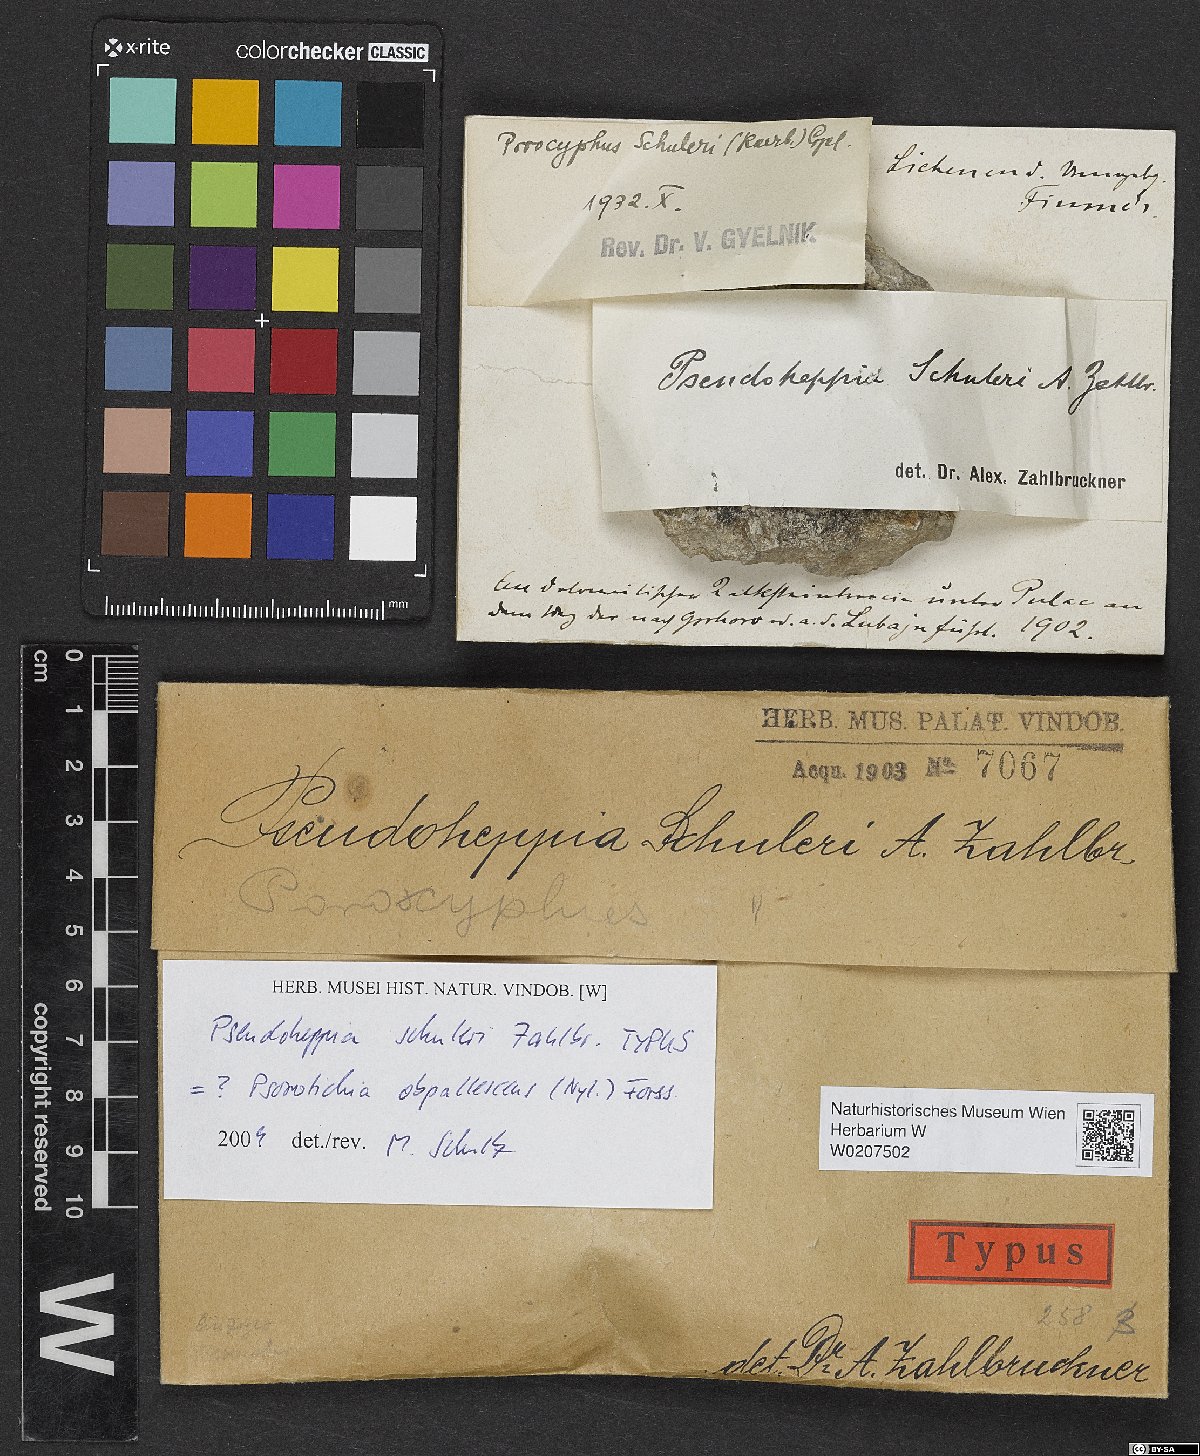 x-rite
colorchecker CLASSIC
mm
Porocyphus Schuleri (Karb.) Gyel.
1932.X.
Rev. Dr. V. GYELNIK
Lichenen d. Umgebg.
Fiume's.
Pseudoheppia Schuleri A. Zahlbr.
det. Dr. Alex. Zahlbruckner
An dolomitischer Kalksteinbreccie unter Pulac an
dem Weg der nach d. Lubajn führt. 1902.
cm 0 1 2 3 4 5 6 7 8 9 10
copyright reserved
W
HERB. MUS. PALAT. VINDOB.
Acqu. 1903 No. 7067
Pseudoheppia Schuleri A. Zahlbr.
Porocyphus
HERB. MUSEI HIST. NATUR. VINDOB. [W]
Pseudoheppia schuleri Zahlbr. TYPUS
= ? Psorotichia obpallescens (Nyl.) Forss.
2004 det./rev. M. Schultz
Naturhistorisches Museum Wien
Herbarium W
W0207502
Typus
258
det. Dr. A. Zahlbruckner
CC BY-SA